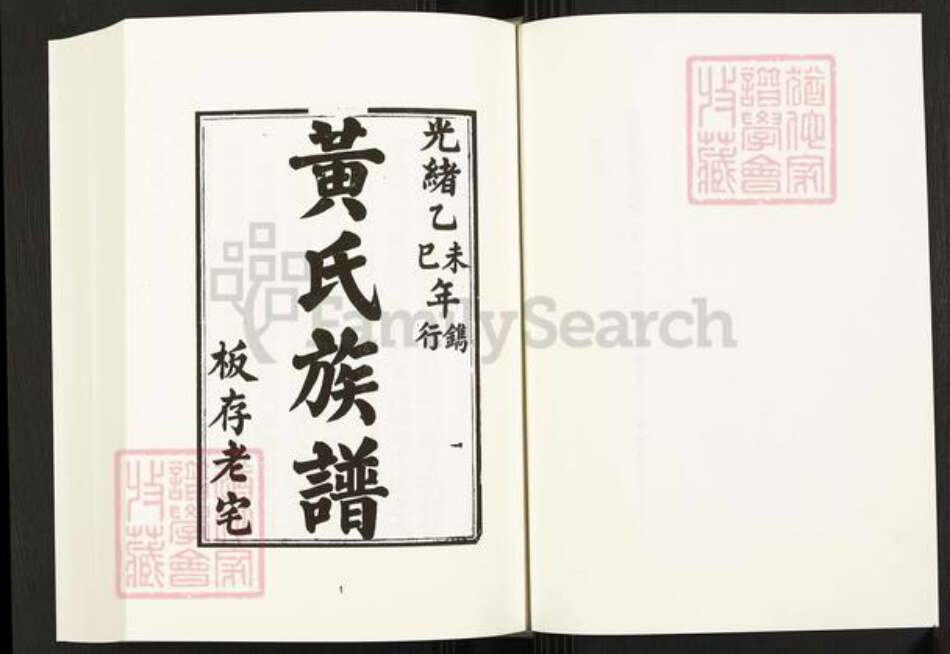 猶他家
譜學會
收藏
光緒乙未巳年鐫行
黃氏族譜
板存老宅
1
猶他家
譜學會
收藏
FamilySearch